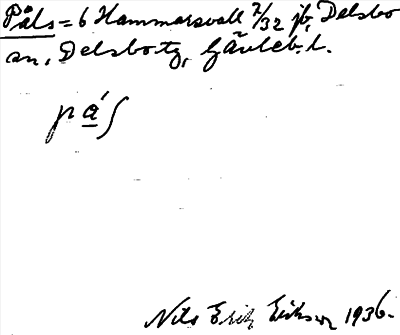 Påls = 6 Hammarsvall 7/32 jb, Delsbo
sn, Delsbo tg, Gävleb. l.
pa̲´s
Nils Erik Erikson 1936.